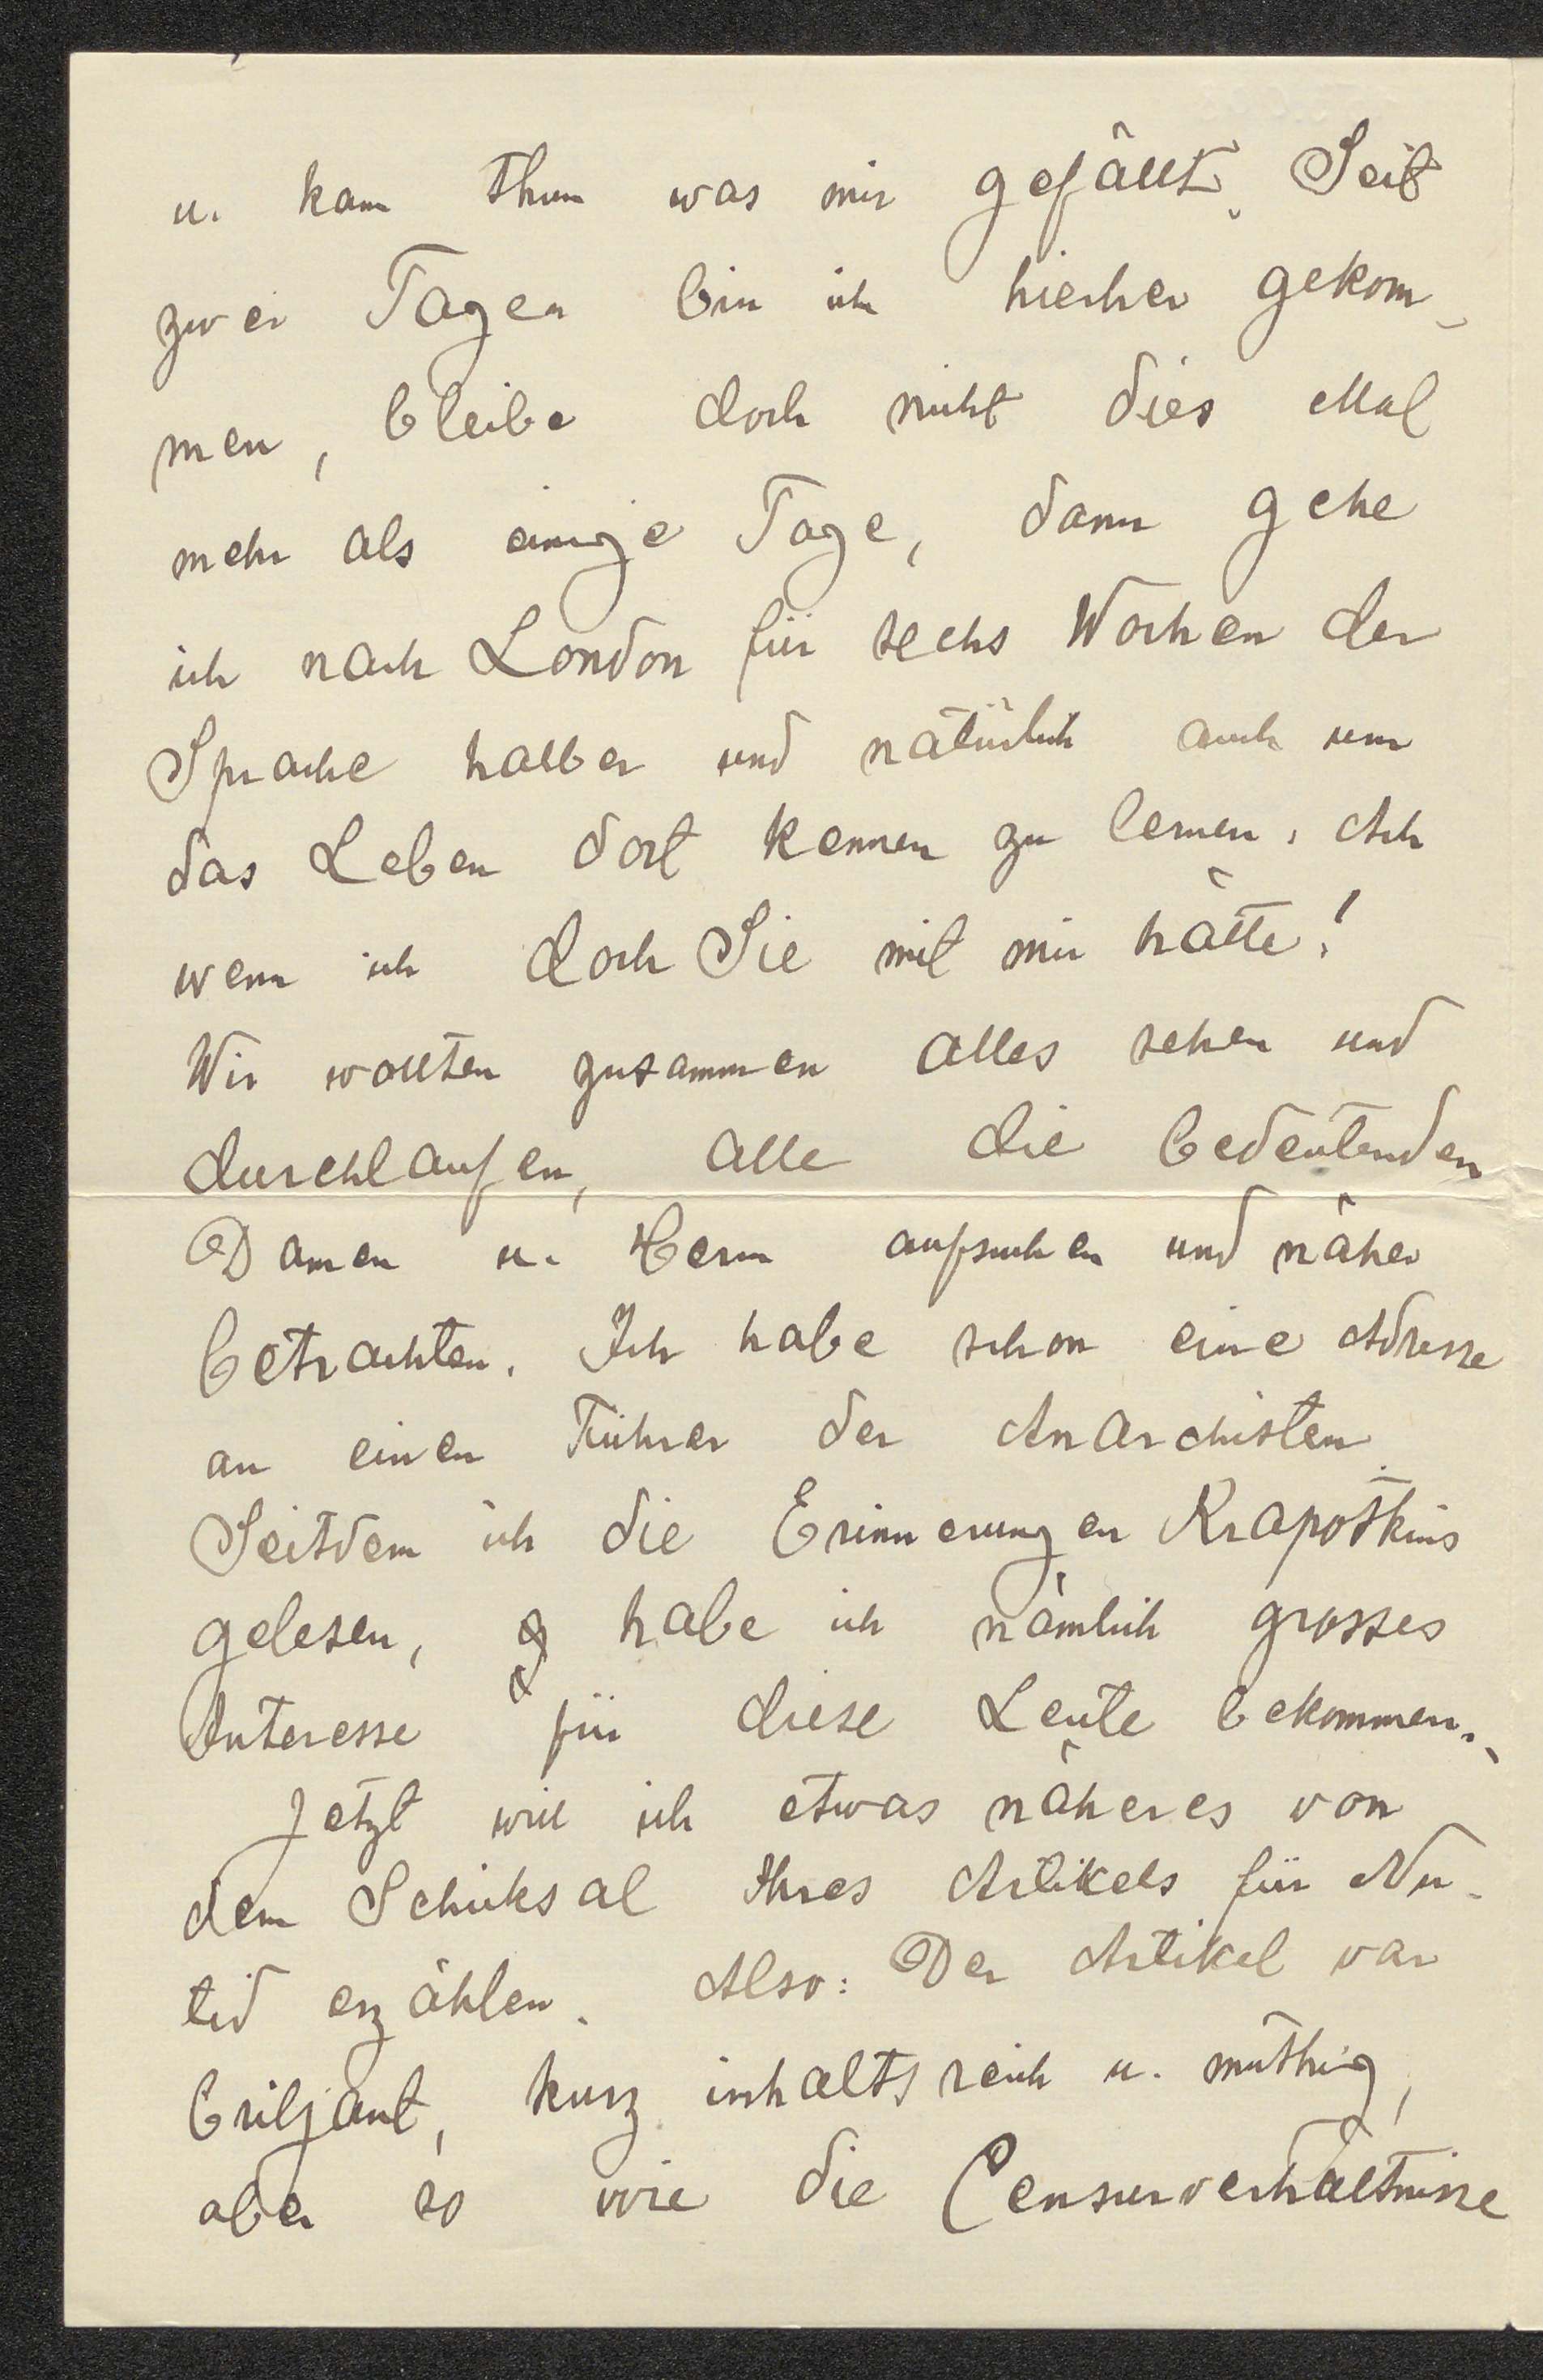 u. kann thun was mir gefällt. Seit
zwei Tagen bin ich hierher gekom-
men, bleibe doch nicht dies Mal
mehr als einige Tage, dann gehe
ich nach London für sechs Wochen der
Sprache halber und natürlich auch um
das Leben dort kennen zu lernen. Ach
wenn ich doch Sie mit mir hätte!
Wir wollten zusammen alles sehen und
durchlaufen, alle die bedeutenden
Damen u. Herrn aufsuchen und näher
betrachten. Ich habe schon eine Adresse
an einen Führer der Anarchisten.
Seitdem ich die Erinnerungen Krapotkins
gelesen, habe ich nämlich grosses
Interesse für diese Leute bekommen.
Jetzt will ich etwas näheres von
dem Schicksal Ihres Artikels für Nu-
tid erzählen. Also: Der Artikel var
briljant, kurz inhaltsreich u. muthig,
aber so wie die Censurverhältnisse